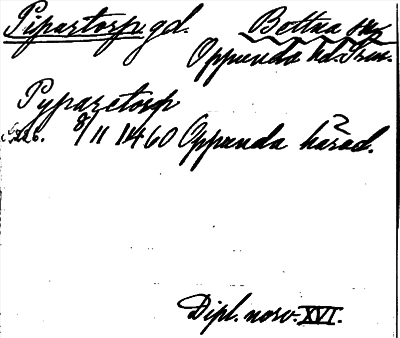 Pipartorp gd. Bettna sn
Oppunda hd. Srm.
Pyparetorp
8/11 1460 Oppunda härad.
Dipl. norv. XVI.